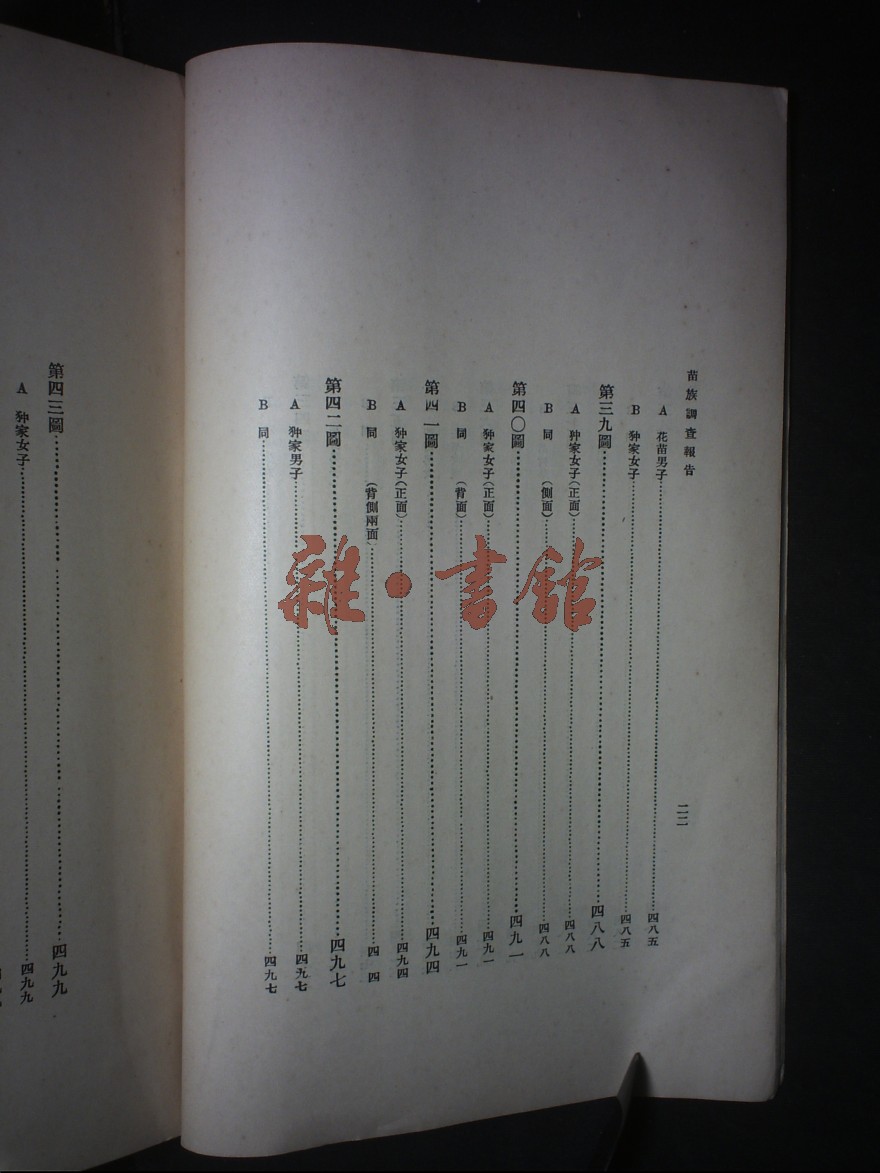 苗族調查報告
二二
A 花苗男子……四八五
B 狆家女子……四八五
第三九圖……四八八
A 狆家女子(正面)……四八八
B 同 (側面)……四八八
第四〇圖……四九一
A 狆家女子(正面)……四九一
B 同 (背面)……四九一
第四一圖……四九四
A 狆家女子(正面)……四九四
B 同 (背側兩面)……四 四
第四二圖……四九七
A 狆家男子……四九七
B 同……四九七
第四三圖……四九九
A 狆家女子……四九九
雜·書館